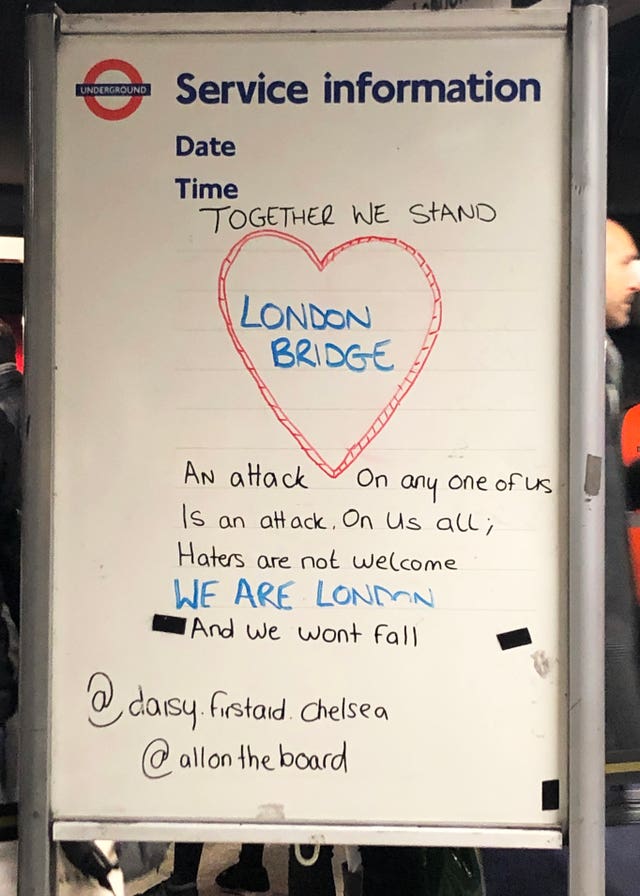 UNDERGROUND
Service information
Date
Time
TOGETHER WE StAND
LONDON
BRIDGE
AN attack On any one of us
Is an attack. On Us all;
Haters are not welcome
WE ARE LONDON
And we wont fall
@daisy.firstaid.chelsea
@allontheboard